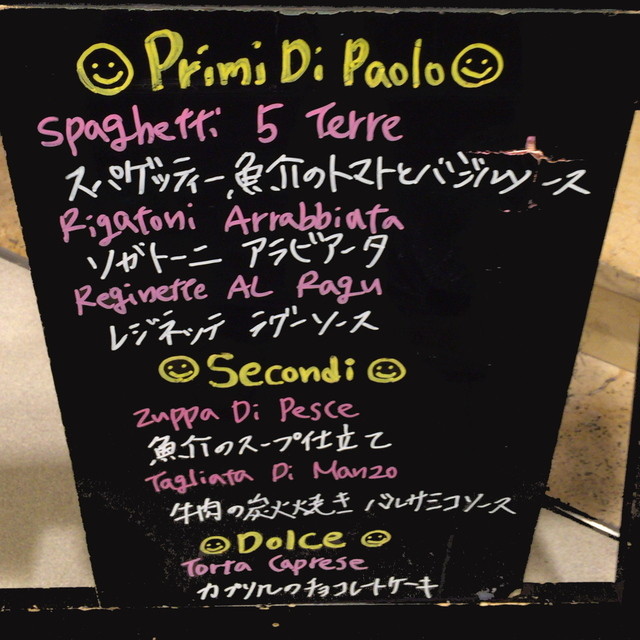 Primi Di Paolo
Spaghetti 5 Terre
スパゲッティー魚介のトマトとバジルソース
Rigatoni Arrabbiata
リガトーニ アラビアータ
Reginette AL Ragu
レジネッテ ラグーソース
Secondi
Zuppa Di Pesce
魚介のスープ仕立て
Tagliata Di Manzo
牛肉の炭火焼き バルサミコソース
Dolce
Torta Caprese
カプリのチョコレートケーキ